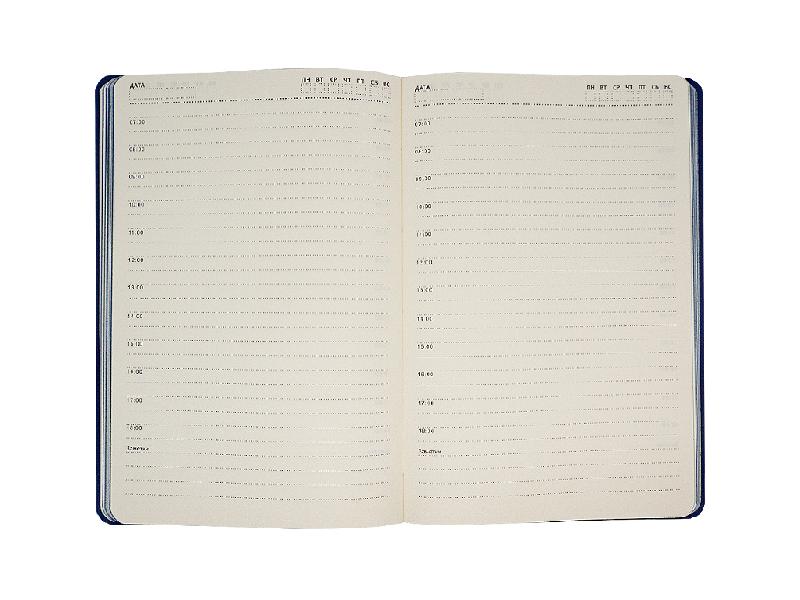 ДАТА ПН ВТ СР ЧТ ПТ СБ ВС
07:00
08:00
09:00
10:00
11:00
12:00
13:00
14:00
15:00
16:00
17:00
18:00
Заметки
ДАТА ПН ВТ СР ЧТ ПТ СБ ВС
07:00
08:00
09:00
10:00
11:00
12:00
13:00
14:00
15:00
16:00
17:00
18:00
Заметки